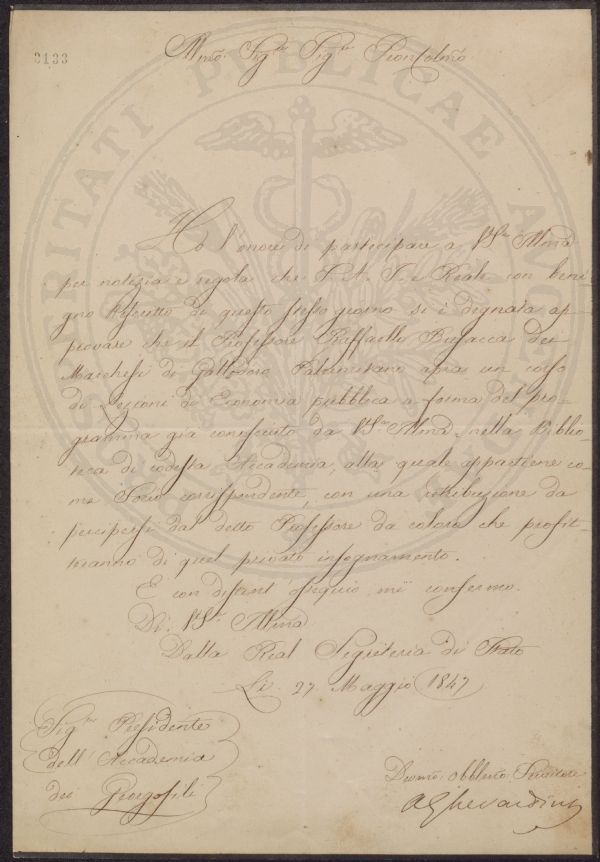 3133
Illmo. Sigre Sigre Pron Colmo
PROSPERITATI PUBLICAE AUGENDAE
Ho l'onore di partecipare a VS. Illma
per notizia e regola che S. A. I. e Reale con beni-
gno Rescritto di questo stesso giorno si è degnata ap-
provare che il Professore Raffaelle Busacca dei
Marchesi di Gallodoro Palermitano apra un corso
di Lezioni di Economia pubblica a forma del pro-
gramma già conosciuto da VS. Illma, nella Biblio-
teca di codesta Accademia, alla quale appartiene co-
me Socio corrispondente, con una retribuzione da
percipersi dal detto Professore da coloro che profit-
teranno di quel privato insegnamento.
E con distint. ossequio mi confermo.
Di VS. Illma
Dalla Real Segreteria di Stato
Li 27 Maggio 1847
Sigre Presidente
dell'Accademia
dei Georgofili
Devmo. Obblmo. Servitore
A Gherardini